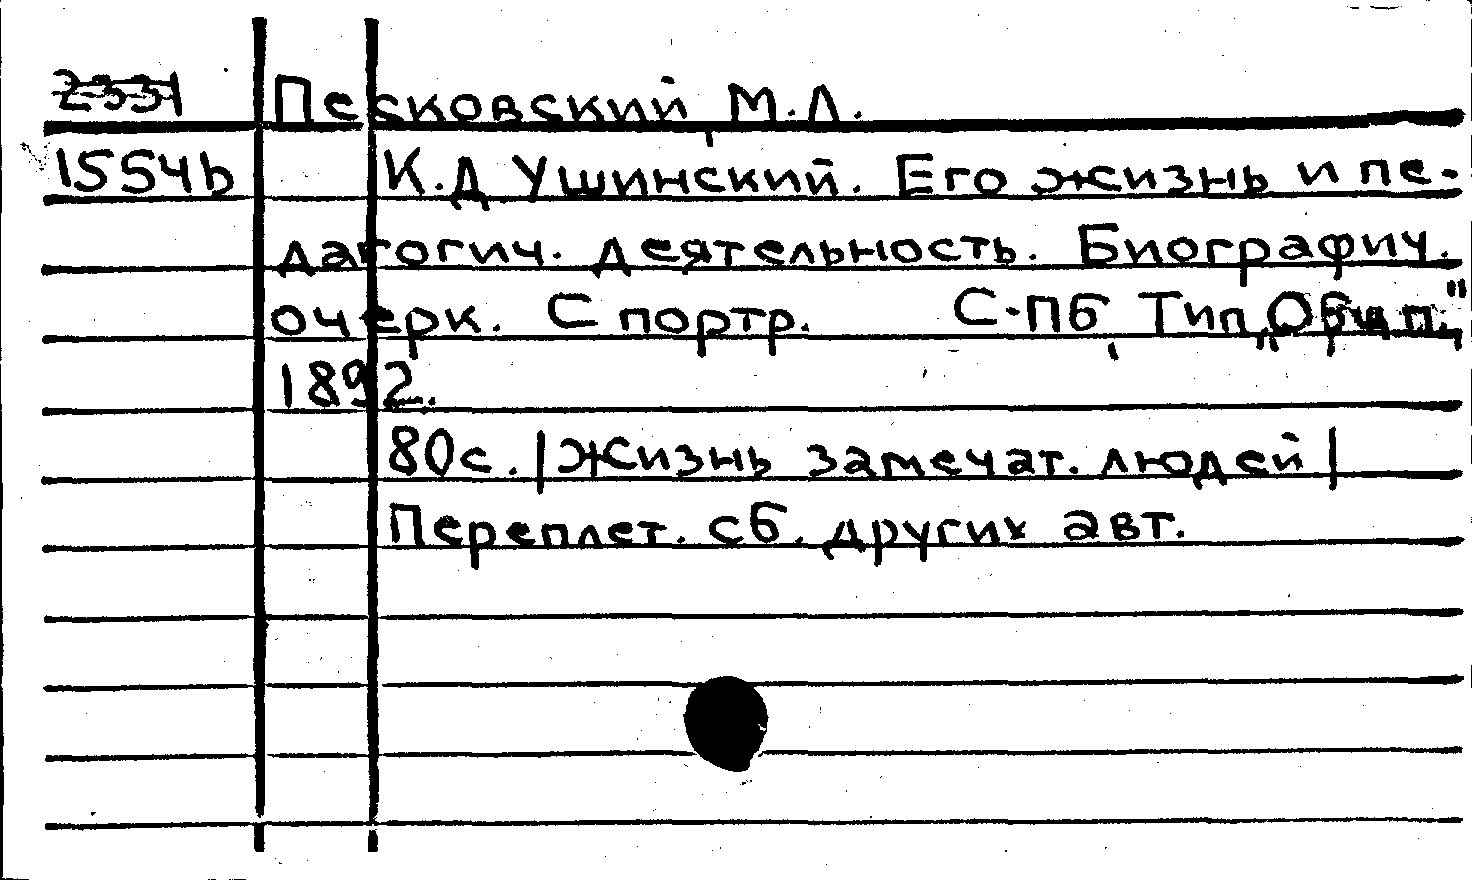 2331 Песковский, М.Л.
1554b К.Д Ушинский. Его жизнь и пе-
дагогич. деятельность. Биографич.
очерк. С портр. С-Пб, Тип. „Общ. п.",
1892.
80с. |Жизнь замечат. людей|
Переплет. сб. других авт.